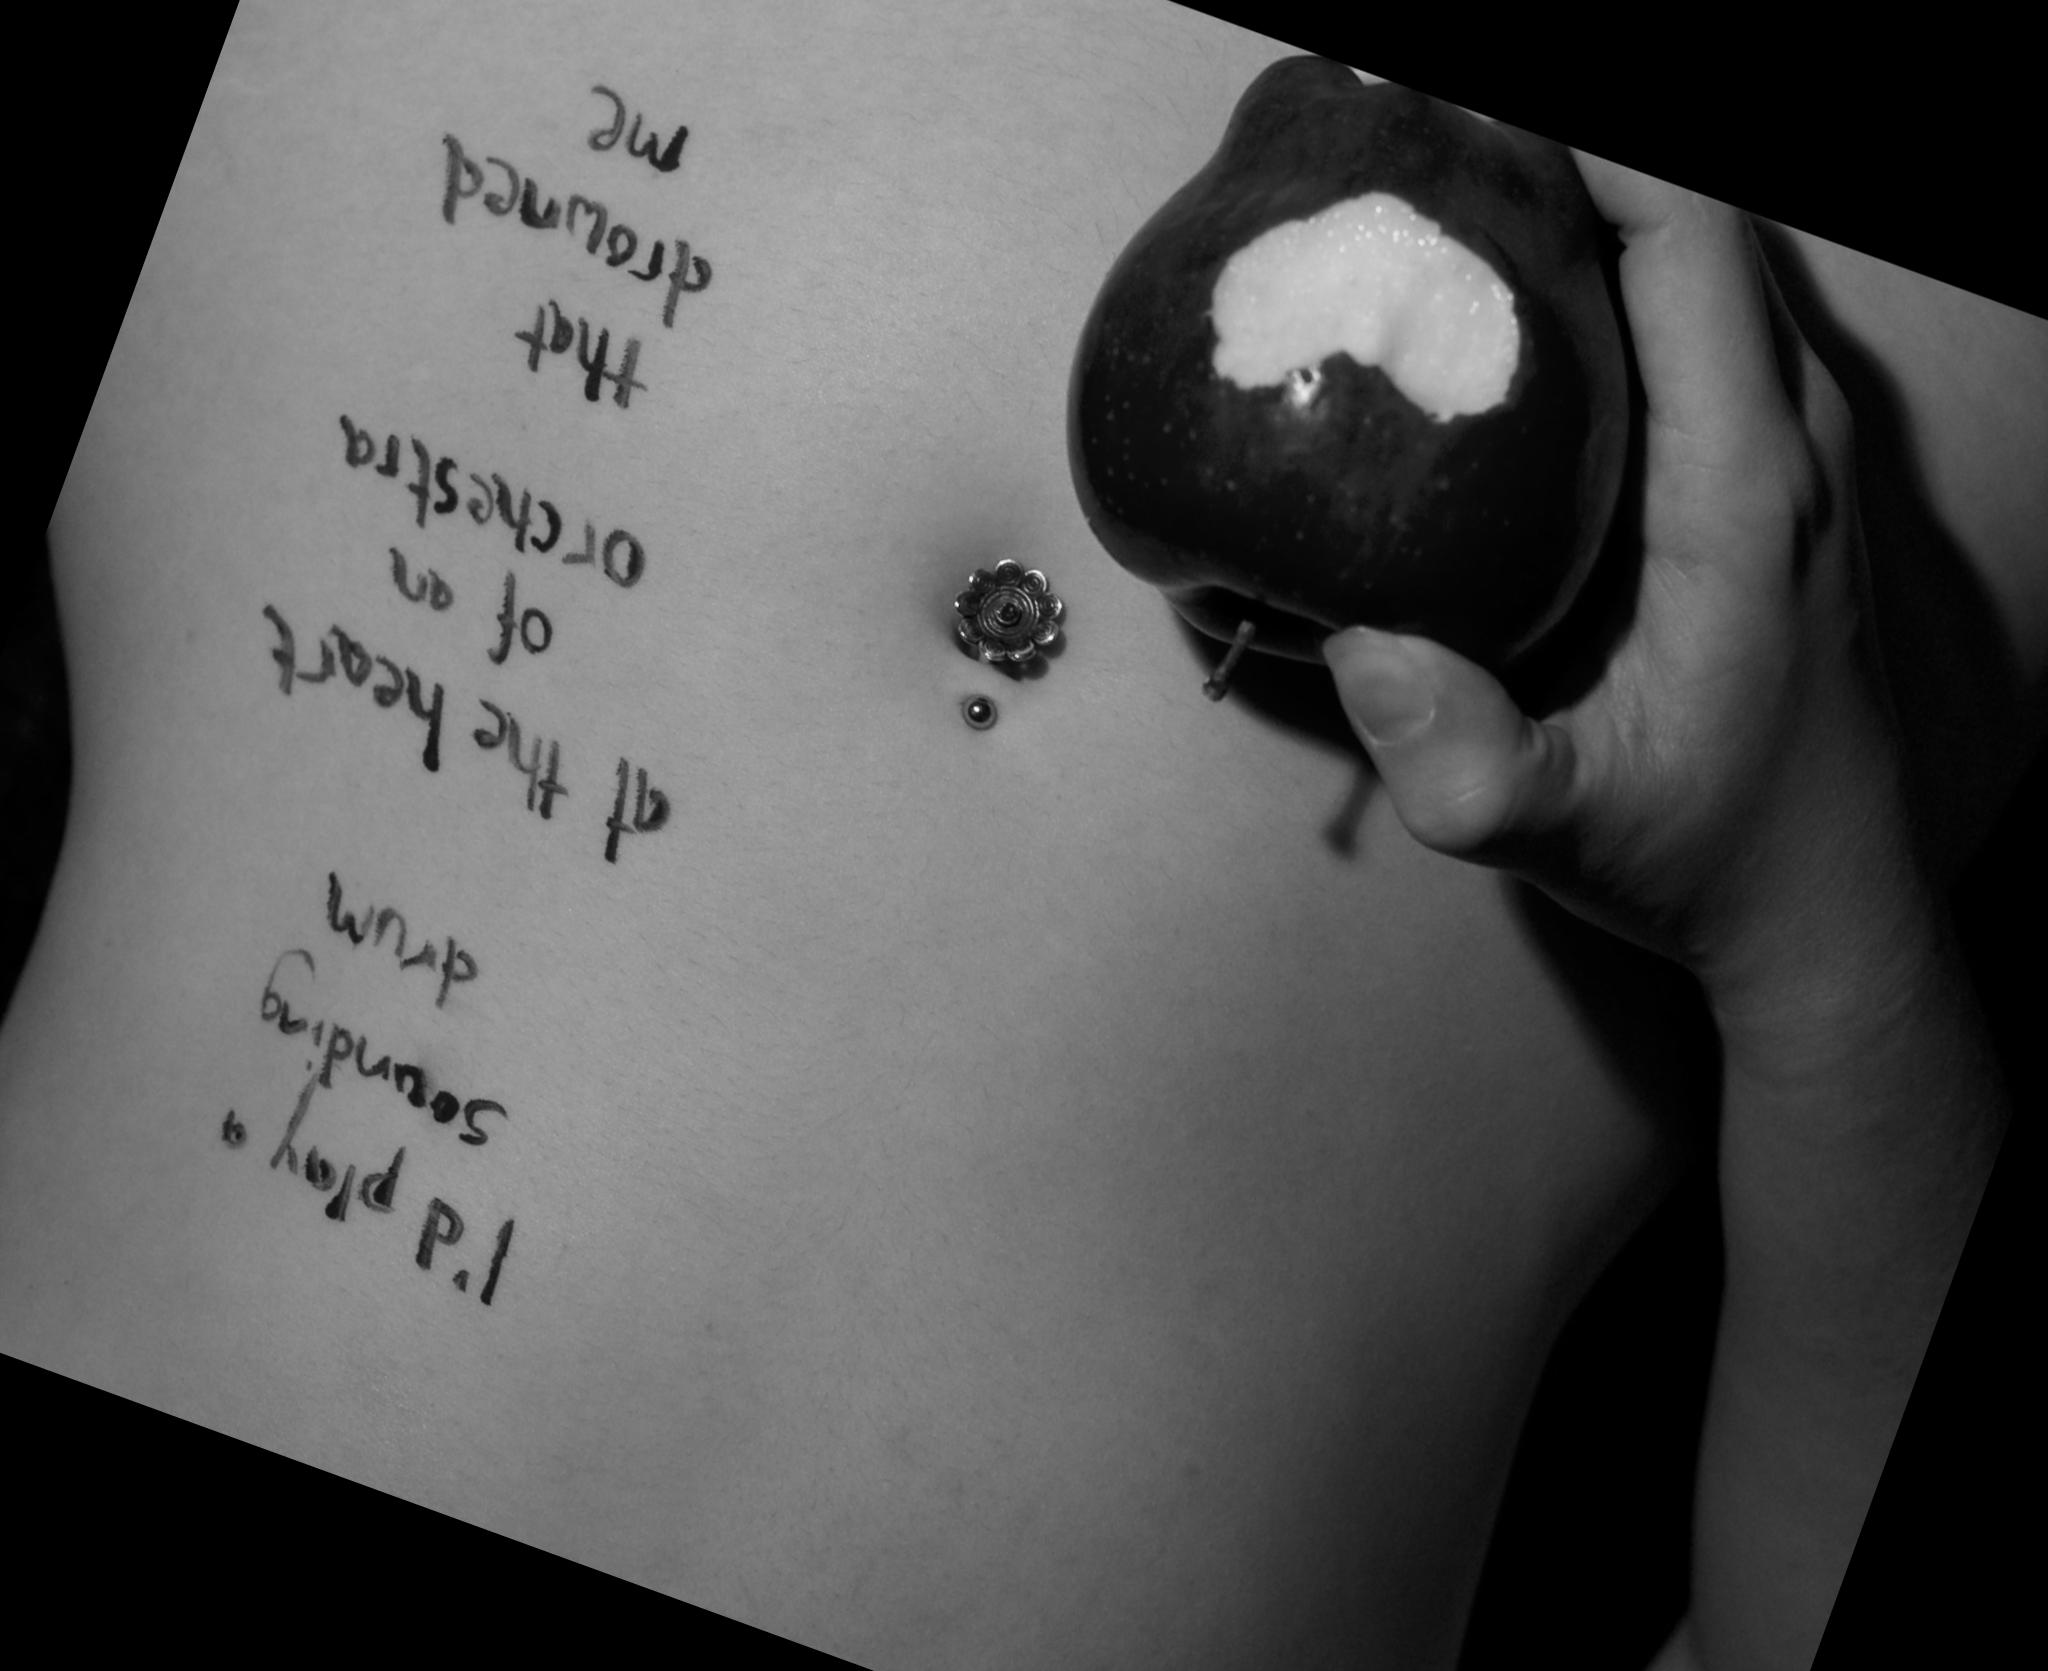 I'd play a
sounding
drum
at the heart
of an
orchestra
that
drowned
me